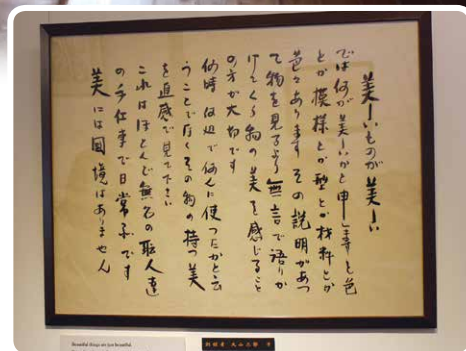 美しいものが美しい
では何が美しいかと申しますと色
とか模様とか型とか材料とか
色々あります その説明があつ
て物を見るより無言で語りか
けてくる物の美を感じること
の方が大切です
何時何処で何んに使つたかと云
うことでなくその物の持つ美
を直感で見て下さい
これはほとんど無名の職人達
の手仕事で日常品です
美には国境はありません
Beautiful things are just beautiful.
創館者 丸山太郎